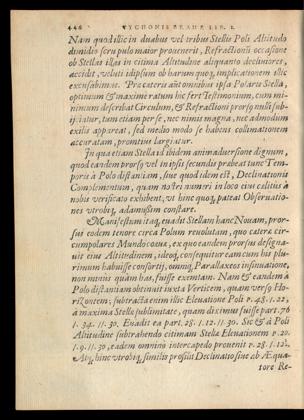 446 TYCHONIS BRAHE LIB. I.
Nam quod illic in duabus vel tribus Stellis Poli Altitudo
dimidio scrupulo maior provenerit, Refractionis occasione
ob Stellas illas in citima Altitudine aliquanto decliviores,
accidit, veluti id ipsum ob harum quoq, implicationem illic
excusabimus. Præcæteris aute omnibus ipsa Polaris Stella,
optimum & maxime ratum hic fert Testimonium, cum mi-
nimum describat Circulum, & Refractioni prorsus nulli sub-
ijciatur, tum etiam per se, nec nimis magna, nec admodum
exilis appareat, sed medio modo se habens collimationem
accuratam, promtius largiatur.
In qua etiam Stella id ibidem animadversione dignum,
quod eandem prorsus vel in ipsis secundis præbeat tunc Tem-
poris à Polo distantiam, sive quod idem est, Declinationis
Complementum, quam nostri numeri in loco eius cœlitus à
nobis verificato exhibent, ut hinc quoq, pateat Observatio-
nes utrobiq, adamussim constare.
Manifestum itaq, evadit Stellam hanc Novam, pror-
sus eodem tenore circa Polum revolutam, quo cæteræ cir-
cumpolares Mundo coæva, ex quo eandem prorsus designa-
vit eius Altitudinem, ideoq, consequitur eam cum his plu-
rimum habuisse consortij, omniq, Parallaxeos insinuatione,
non minùs quàm has, fuisse exemtam. Nam & eandem à
Polo distantiam obtinuit iuxta Verticem, quam versus Ho-
rizontem; subtracta enim illic Elevatione Poli P. 48. I. 22,
à maxima Stellæ sublimitate, quam diximus fuisse part. 76
I. 34. II. 30. Evadit ea part. 28. I. 12. II. 30. Sic & à Poli
Altitudine subtrahendo citimam Stellæ Elevationem P. 20.
I. 9. II. 30, eadem omnino intercapedo provenit P. 28. I. 12½.
Atq, hinc utrobiq, similis prosilit Declinatio sive ab Æqua-
tore Re-